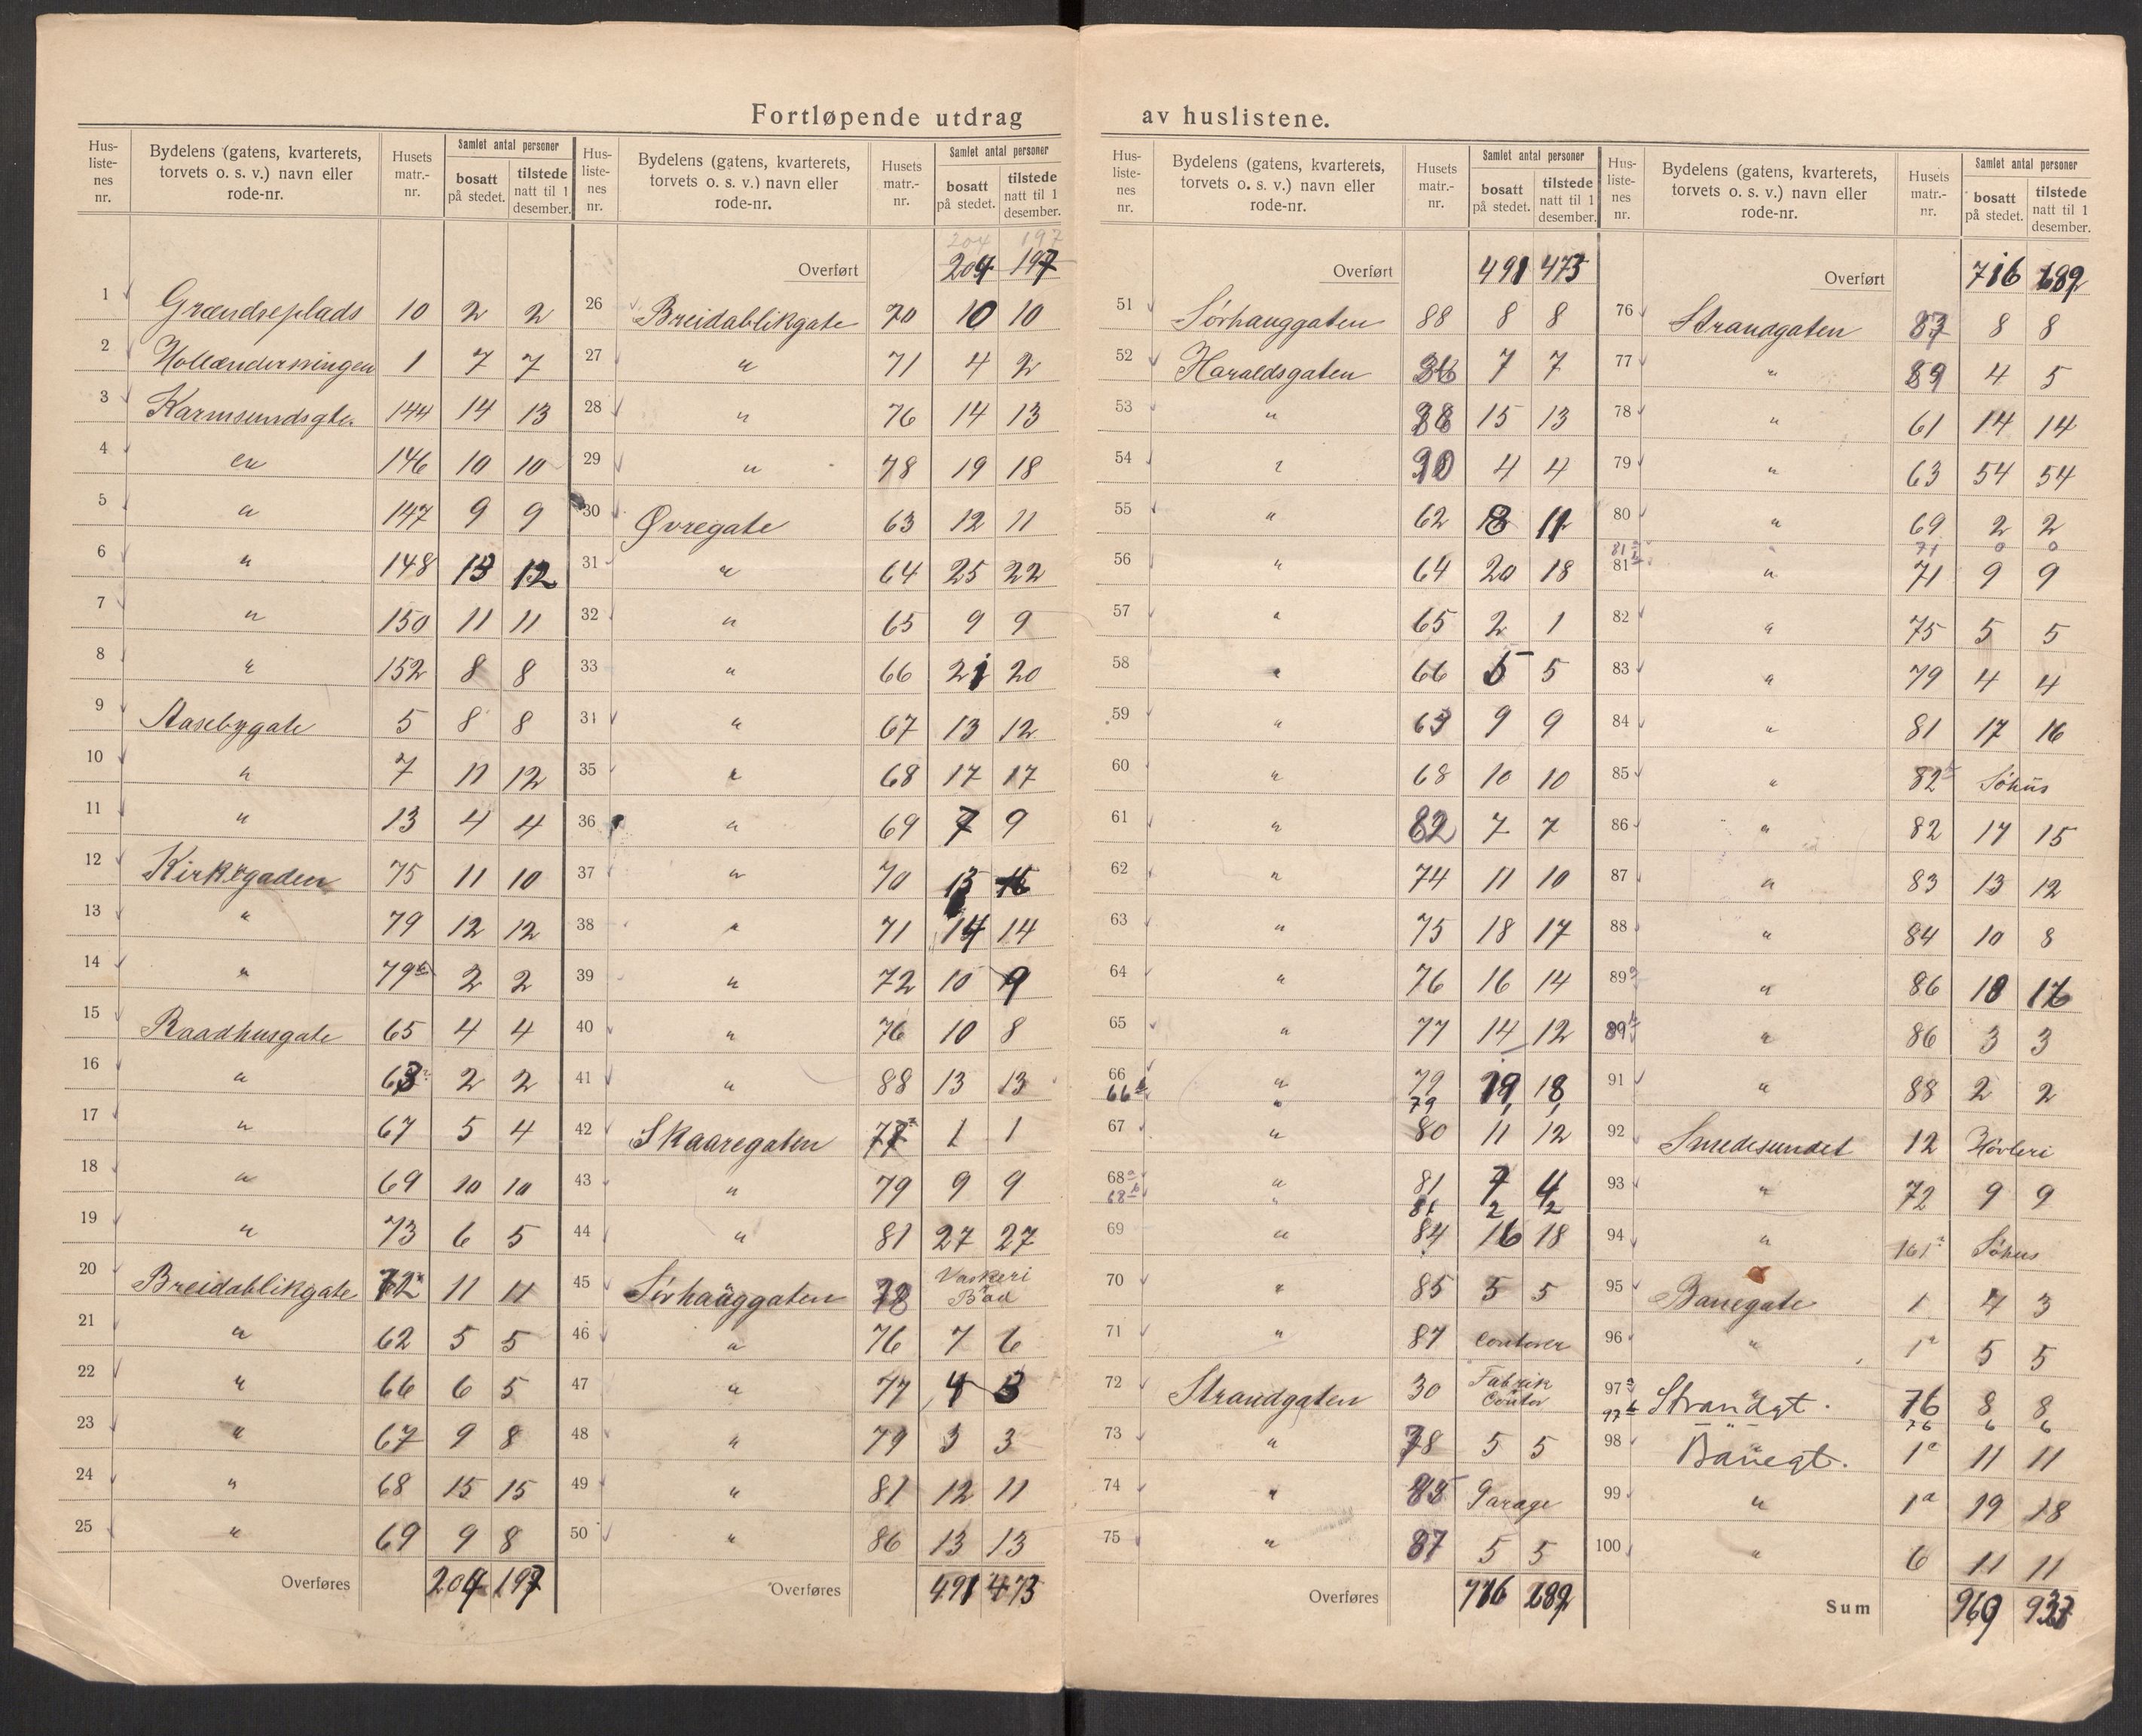 Fortløpende utdrag av huslistene.
Hus-liste-nes nr. Bydelens (gatens, kvarterets, torvets o. s. v.) navn eller rode-nr. Husets matr.-nr. Samlet antal personer bosatt på stedet. tilstede natt til 1 desember.
1 Grændseplads 10 2 2
2 1 7 7
3 Karmsundsgte. 144 14 13
4 " 146 10 10
5 " 147 9 9
6 " 148 13 12
7 " 150 11 11
8 " 152 8 8
9 Aasebygate 5 8 8
10 " 7 11 12
11 " 13 4 4
12 Kirkegaden 75 11 10
13 " 79 12 12
14 " 79b 2 2
15 Raadhusgate 65 4 4
16 " 2 2
17 " 67 5 4
18 " 69 10 10
19 " 73 6 5
20 Breidablikgate 72a 11 11
21 " 62 5 5
22 " 66 6 5
23 " 67 9 8
24 " 68 15 15
25 " 69 9 8
Overføres 204 197
Hus-liste-nes nr. Bydelens (gatens, kvarterets, torvets o. s. v.) navn eller rode-nr. Husets matr.-nr. Samlet antal personer bosatt på stedet. tilstede natt til 1 desember.
204 197
Overført 204 197
26 Breidablikgate 70 10 10
27 " 71 4 2
28 " 76 14 13
29 " 78 19 18
30 Øvregate 63 12 11
31 " 64 25 22
32 " 65 9 9
33 " 66 21 20
34 " 67 13 12
35 " 68 17 17
36 " 69 7 9
37 " 70 15
38 " 71 14 14
39 " 72 10 9
40 " 76 10 8
41 " 88 13 13
42 Skaaregaten 77a 1 1
43 " 79 9 9
44 " 81 27 27
45 Sørhauggaten 78 Vaskeri
Bad
46 " 76 7 6
47 " 77 4 3
48 " 79 3 3
49 " 81 12 11
50 " 86 13 13
Overføres 491 473
Hus-liste-nes nr. Bydelens (gatens, kvarterets, torvets o. s. v.) navn eller rode-nr. Husets matr.-nr. Samlet antal personer bosatt på stedet. tilstede natt til 1 desember.
Overført 491 473
51 Sørhauggaten 88 8 8
52 Haraldsgaten 7 7
53 " 15 13
54 " 90 4 4
55 " 62 18 11
56 " 64 20 18
57 " 65 2 1
58 " 66 5 5
59 " 9 9
60 " 68 10 10
61 " 82 7 7
62 " 74 11 10
63 " 75 18 17
64 " 76 16 14
65 " 77 14 12
66 " 79 19 18
66b " 79 1 1
67 " 80 11 12
68a " 81 7 4
68b " 81 2 2
69 " 84 16 18
70 " 85 5 5
71 " 87 Contorer
72 Strandgaten 30 Fabrik
Contor
73 " 78 5 5
74 " 85 Garage
75 " 87 5 5
Overføres 716 689
Hus-liste-nes nr. Bydelens (gatens, kvarterets, torvets o. s. v.) navn eller rode-nr. Husets matr.-nr. Samlet antal personer bosatt på stedet. tilstede natt til 1 desember.
Overført 716 689
76 Strandgaten 87 8 8
77 " 89 4 5
78 " 61 14 14
79 " 63 54 54
80 " 69 2 2
81a " 71 0 0
81b " 71 9 9
82 " 75 5 5
83 " 79 4 4
84 " 81 17 16
85 " 82b Söhus
86 " 82 17 15
87 " 83 13 12
88 " 84 10 8
89a " 86 18 16
89b " 86 3 3
91 " 88 2 2
92 Smedesundet 12 Høvleri
93 " 72 9 9
94 " 161a Söhus
95 Banegate 1 4 3
96 " 1a 5 5
97a Strandgt. 76 8 8
97b " 76 6 6
98 Banegt. 1a 11 11
99 " 1a 19 18
100 " 6 11 11
Sum 969 937